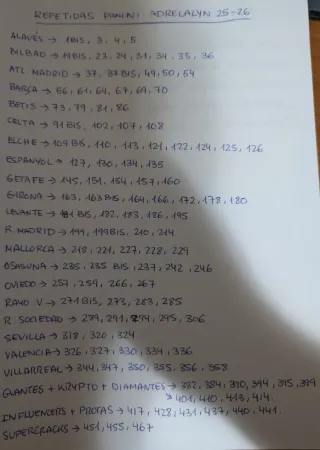 REPETIDAS PANINI ADRELALYN 25-26
ALAVÉS → 1BIS, 3, 4, 5
BILBAO → 19BIS, 23, 24, 31, 34, 35, 36
ATL. MADRID → 37, 37BIS, 49, 50, 54
BARÇA → 56, 61, 64, 67, 69, 70
BETIS → 73, 79, 81, 86
CELTA → 91BIS, 102, 107, 108
ELCHE → 109BIS, 110, 113, 121, 122, 124, 125, 126
ESPANYOL → 127, 130, 134, 135
GETAFE → 145, 151, 154, 157, 160
GIRONA → 163, 163BIS, 164, 166, 172, 178, 180
LEVANTE → 181 BIS, 182, 183, 186, 195
R. MADRID → 199, 199BIS, 210, 214
MALLORCA → 218, 221, 227, 228, 229
OSASUNA → 235, 235 BIS, 237, 242, 246
OVIEDO → 257, 259, 266, 267
RAYO V → 271BIS, 273, 283, 285
R. SOCIEDAD → 289, 291, 294, 295, 306
SEVILLA → 318, 320, 324
VALENCIA → 326, 327, 330, 334, 336
VILLARREAL → 344, 347, 350, 355, 356, 358
GUANTES + KRYPTO + DIAMANTES → 382, 384, 390, 394, 395, 399
→ 401, 410, 413, 414.
INFLUENCERS + PROTAS → 417, 428, 431, 437, 440, 441.
SUPERCRACKS → 451, 455, 467